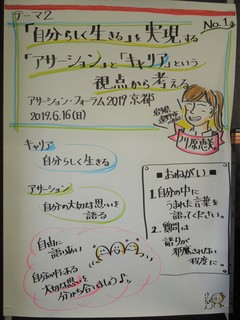 テーマ2
No.1
「自分らしく生きる」を実現する
「アサーション」と「キャリア」という
視点から考える
アサーション・フォーラム2019 京都
2019.6.16(日)
川原恵美
キャリア
自分らしく生きる
アサーション
自分の大切な思いを
語る
自由に
語り合い
自分の中にある
大切な思いを
分かち合いましょう♪
おねがい
1. 自分の中に
うまれた言葉を
語ってください。
2. 質問は
語りが
邪魔されない
程度に